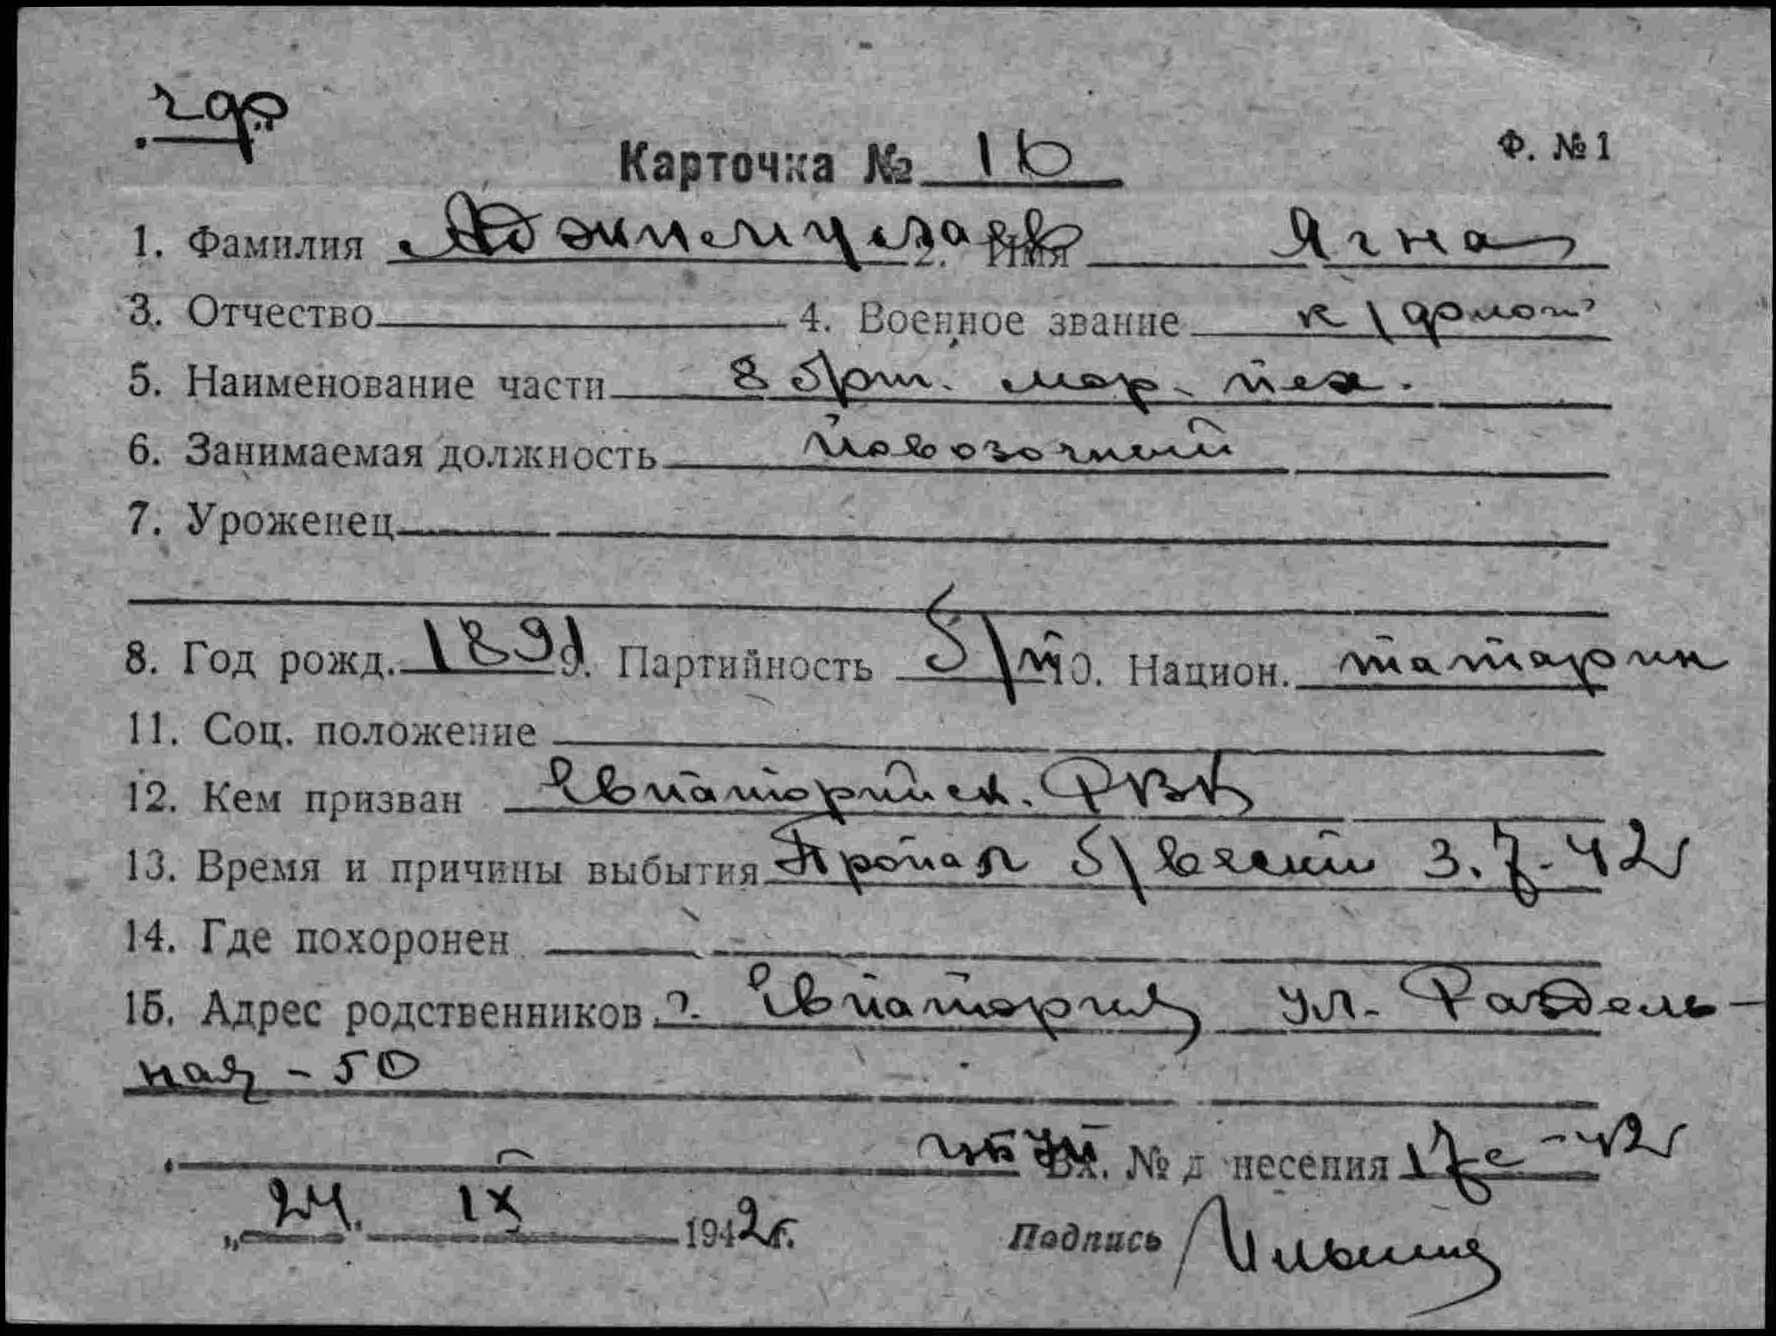 гдр
Карточка № 16 Ф. № 1
1. Фамилия Аджимуллаев 2. Имя Ягна
3. Отчество 4. Военное звание к/флот
5. Наименование части 8 бриг. мор. пех.
6. Занимаемая должность повозочный
7. Уроженец
8. Год рожд. 1891 9. Партийность б/п 10. Национ. татарин
11. Соц. положение
12. Кем призван Евпаторийск. РВК
13. Время и причины выбытия Пропал б/вести 3.7-42
14. Где похоронен
15. Адрес родственников г. Евпатория ул. Раздель-
ная - 50
Вх. № д несения 17с -42
„24. IX 1942г.
Подпись Ильина